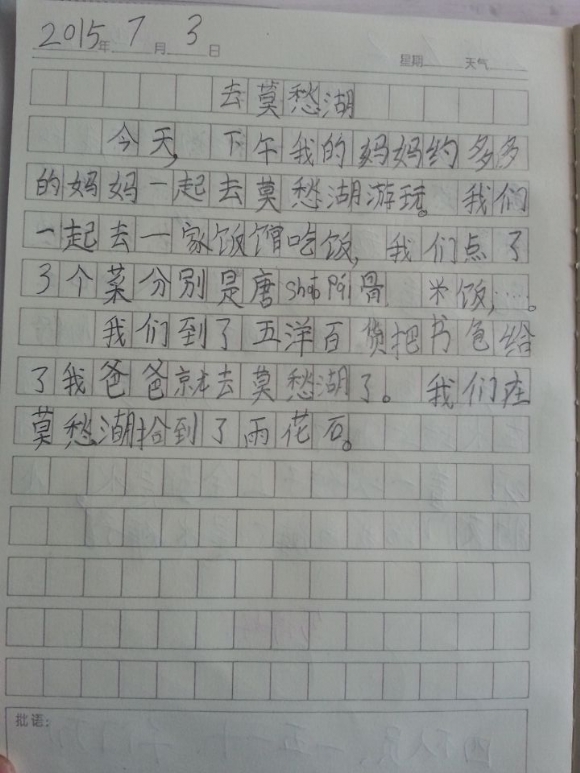 2015年7月3日 星期 天气
去莫愁湖
今天,下午我的妈妈约多多
的妈妈一起去莫愁湖游玩。我们
一起去一家饭馆吃饭,我们点了
3个菜分别是唐 pái骨 米饭,……。
我们到了五洋百货把书包给
了我爸爸就去莫愁湖了。我们在
莫愁湖拾到了雨花石。
批语: